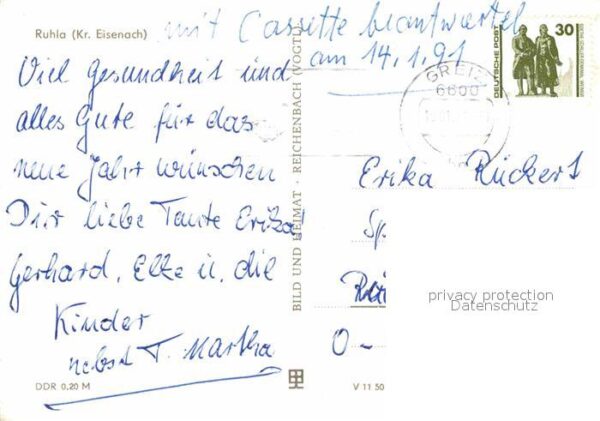 Ruhla (Kr. Eisenach)
mit Cassette beantwortet
am 14.1.91
Viel Gesundheit und
alles Gute für das
neue Jahr wünschen
Dir liebe Tante Erika!
Gerhard, Elke u. die
Kinder
nebst T. Martha
DDR 0.20 M
BILD UND HEIMAT · REICHENBACH (VOGTL)
V 11 50
DEUTSCHE POST
30
GREIZ
6600
Erika Rückert
Sp
O-
privacy protection
Datenschutz